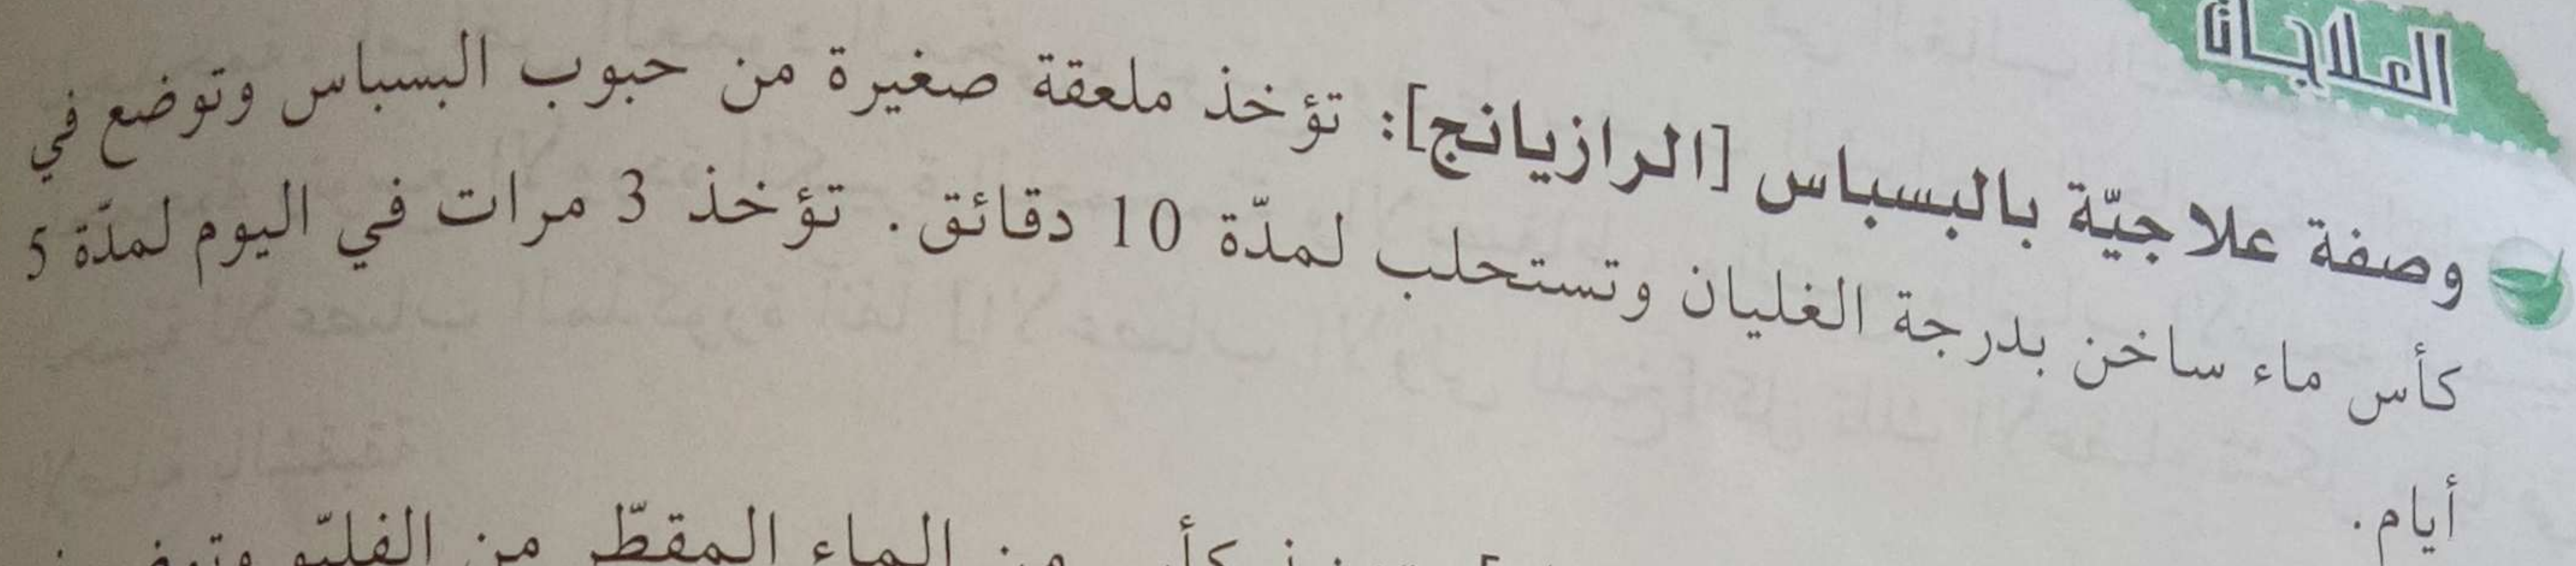 العلاجات
وصفة علاجيّة بالبسباس [الرازيانج]: تؤخذ ملعقة صغيرة من حبوب البسباس وتوضع في
كأس ماء ساخن بدرجة الغليان وتستحلب لمدّة 10 دقائق. تؤخذ 3 مرات في اليوم لمدّة 5
أيام.
كأس من الماء المقطّر من الفليّو